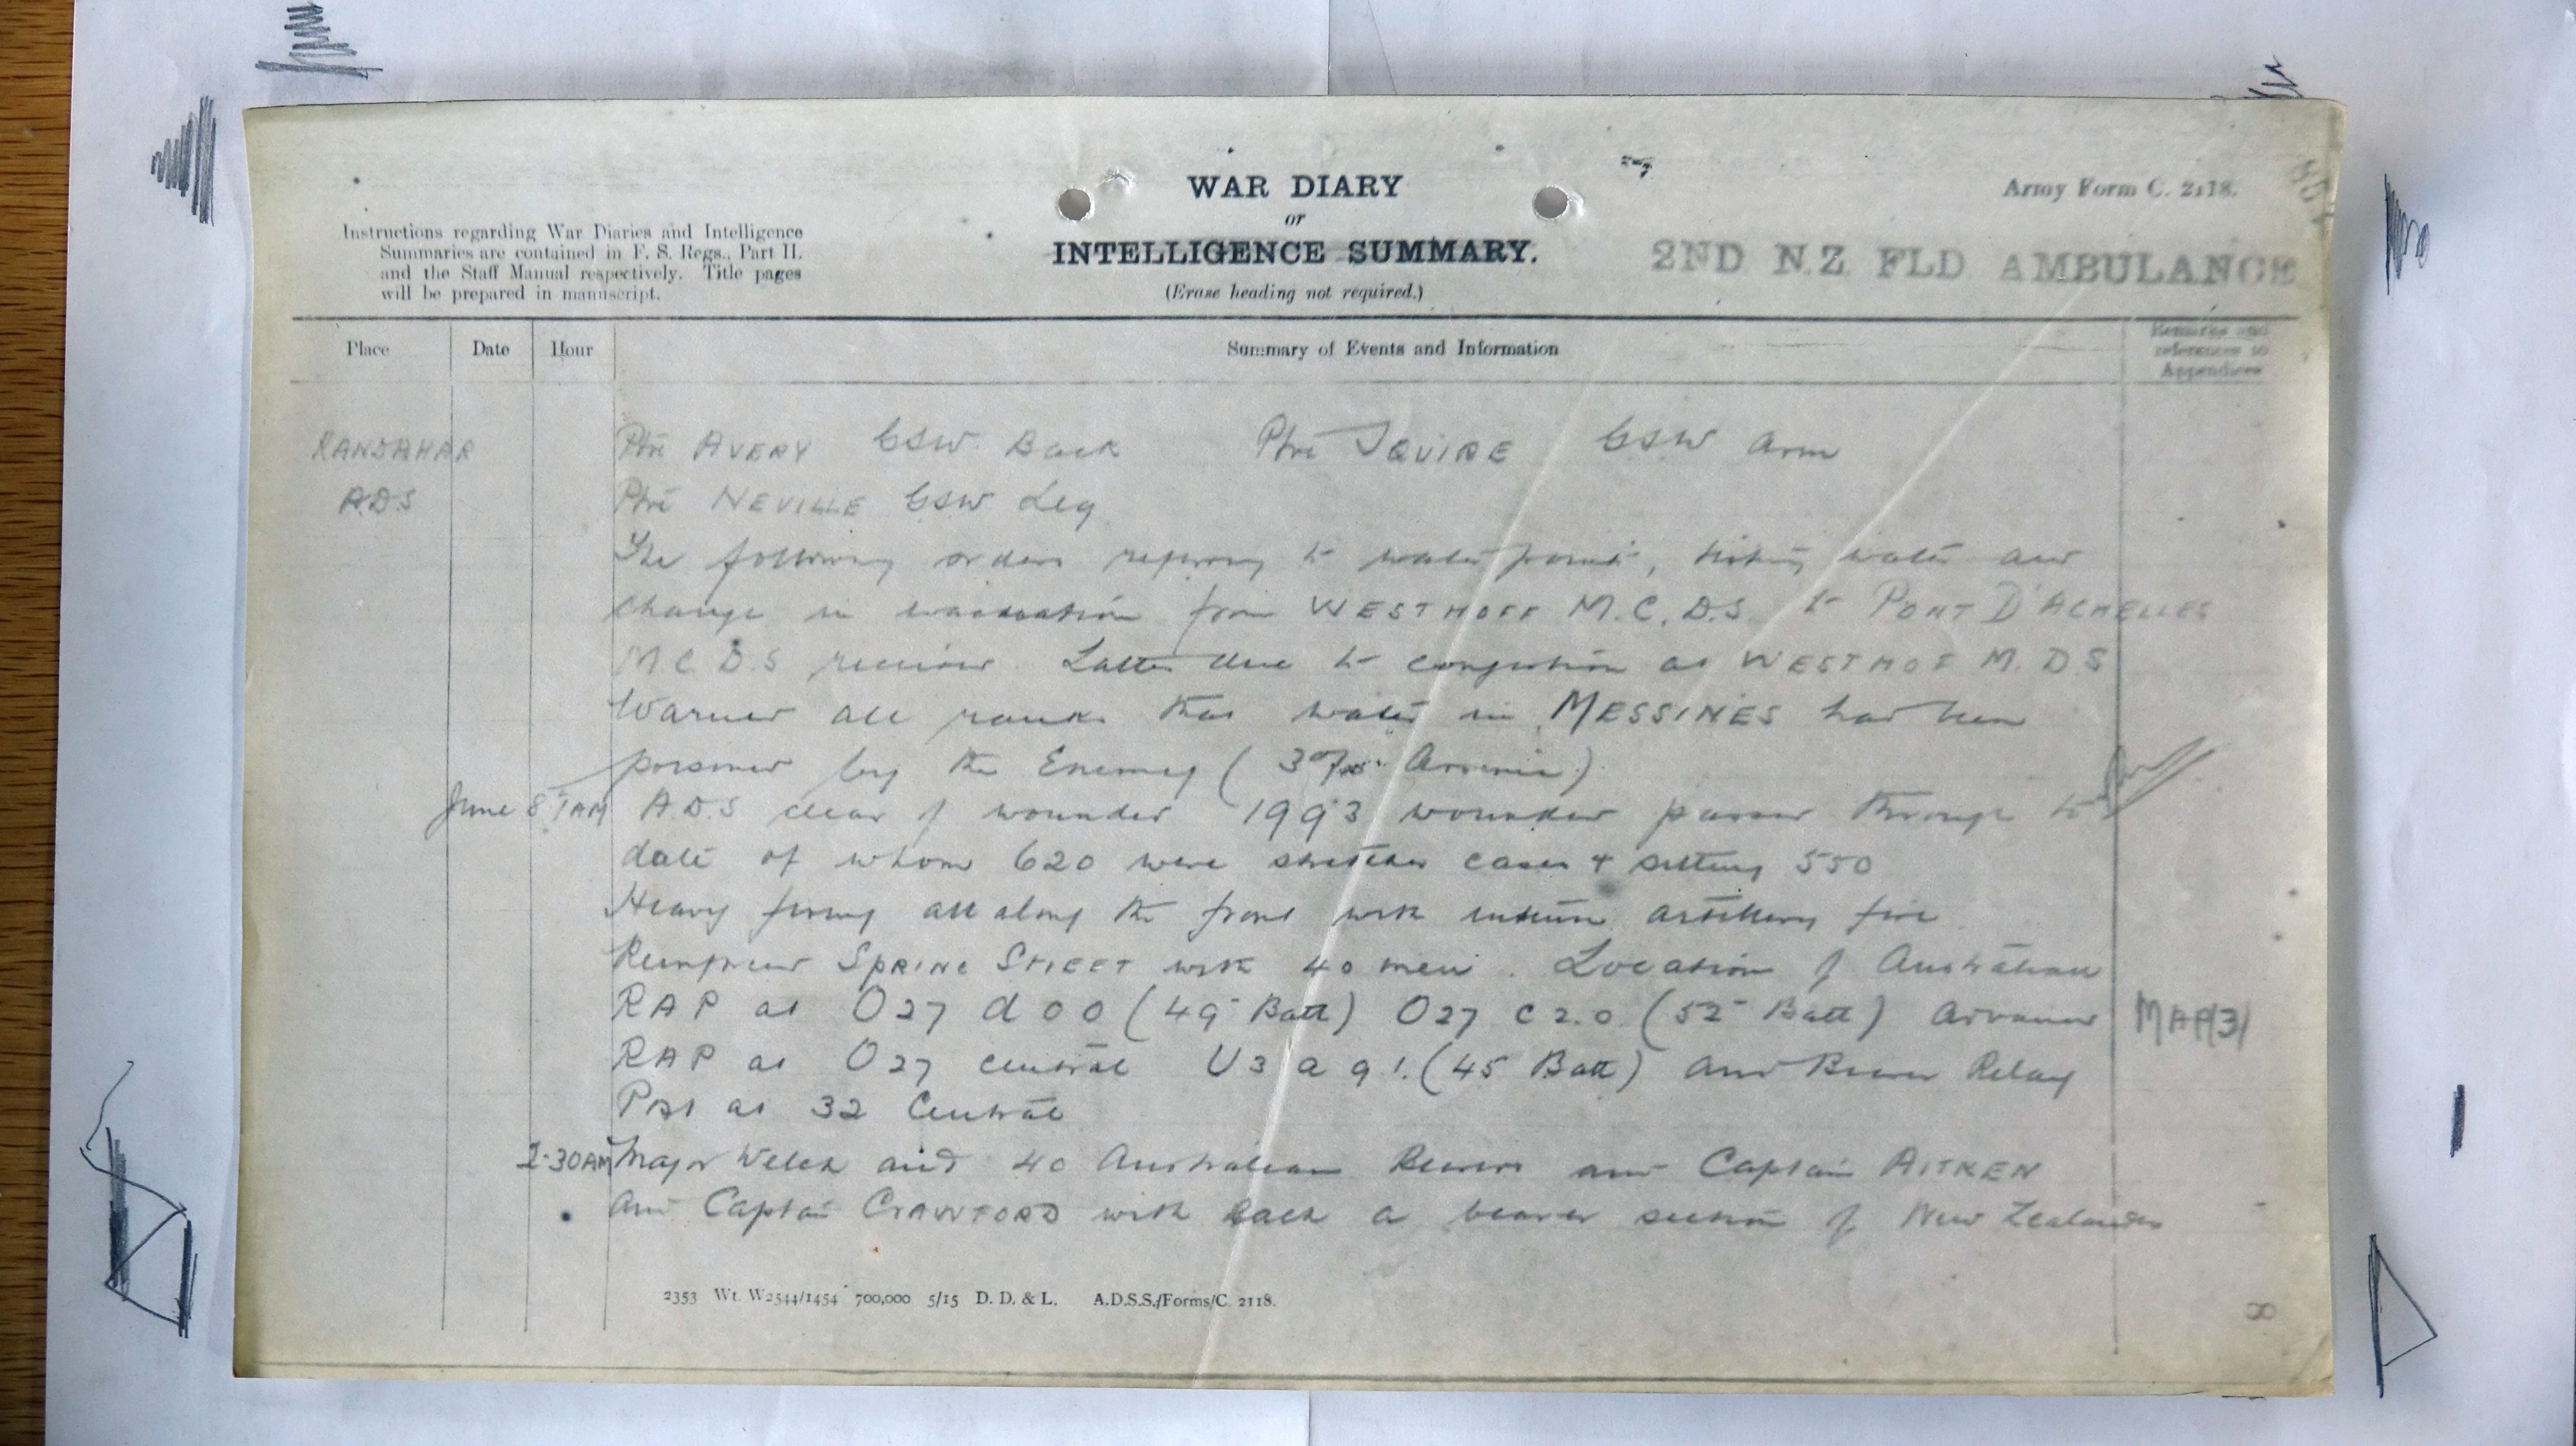 WAR DIARY
or
INTELLIGENCE SUMMARY.
(Erase heading not required.)
Army Form C. 2118.
Instructions regarding War Diaries and Intelligence
Summaries are contained in F. S. Regs., Part II.
and the Staff Manual respectively. Title pages
will be prepared in manuscript.
2ND N.Z FLD AMBULANCE
Place Date Hour Summary of Events and Information Remarks and
references to
Appendices
KANDAHAR Pte AVERY GSW Back Pte SQUIRE GSW Arm
A.D.S Pte NEVILLE GSW Leg
The following orders referring to water points, water and
change in evacuation from WESTHOFF M.C.D.S. to PONT D'ACHELLES
M.C.D.S received. Latter due to congestion at WESTHOF M.D.S
Warned all ranks that water in MESSINES had been
poisoned by the Enemy ( Arsenic)
June 8 1AM A.D.S clear of wounded 1993 wounded passed through to
date of whom 620 were stretcher cases & sitting 550
Heavy firing all along the front with intense artillery fire
SPRING STREET with 40 men. Location of Australian
RAP at O27 d 0 0 (49 Batt) O27 C 2.0. (52 Batt) Advanced MAP(3)
RAP at O27 central U3 a 9 1. (45 Batt) and Bearer Relay
Post at 32 Central
2.30AM Major Welch and 40 Australian Bearers and Captain AITKEN
and Captain CRAWFORD with each a bearer section of New Zealanders
2353 Wt. W2544/1454 700,000 5/15 D. D. & L. A.D.S.S./Forms/C. 2118.
8